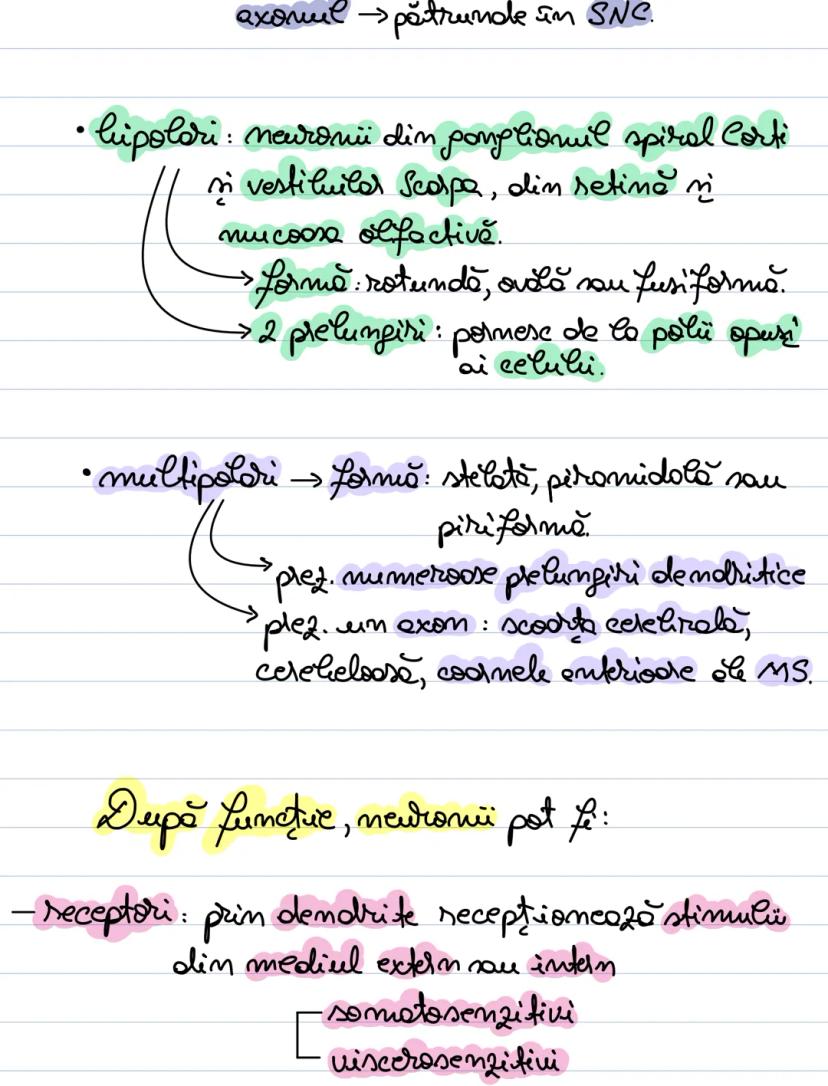 axonul → pătrunde în SNC.
• bipolari: neuronii din ganglionul spiral Corti
și vestibular Scarpa, din retină și
mucoasa olfactivă.
→ formă: rotundă, ovală sau fusiformă.
→ 2 prelungiri: pornesc de la polii opuși
ai celulei.
• multipolari → formă: stelată, piramidală sau
piriformă.
→ prez. numeroase prelungiri dendritice
→ prez. un axon: scoarța cerebrală,
cerebeloasă, coarnele anterioare ale MS.
După funcție, neuronii pot fi:
– receptori: prin dendrite recepționează stimulii
din mediul extern sau intern
somatosenzitivi
viscerosenzitivi